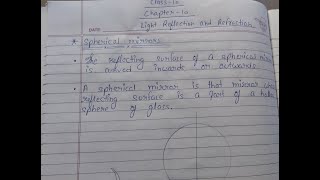 Class-10
Chapter-10
Light Reflection and Refraction
DATE
* Spherical mirrors
• The reflecting surface of a spherical mirror
is curved inwards or outwards.
• A spherical mirror is that mirror whose
reflecting surface is a part of a hollow
sphere of glass.